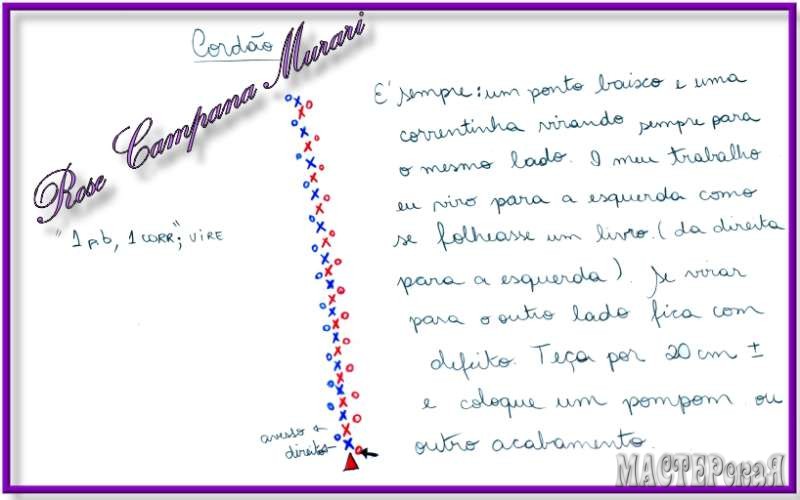 Cordão
Rose Campana Murari
"1 pb, 1 corr"; vire
É sempre: um ponto baixo e uma
correntinha virando sempre para
o mesmo lado. O meu trabalho
eu viro para a esquerda como
se folheasse um livro. (da direita
para a esquerda). Se virar
para o outro lado fica com
defeito. Teça por 20 cm ±
e coloque um pompom ou
outro acabamento.
avesso
direito
МАСТЕРскаЯ